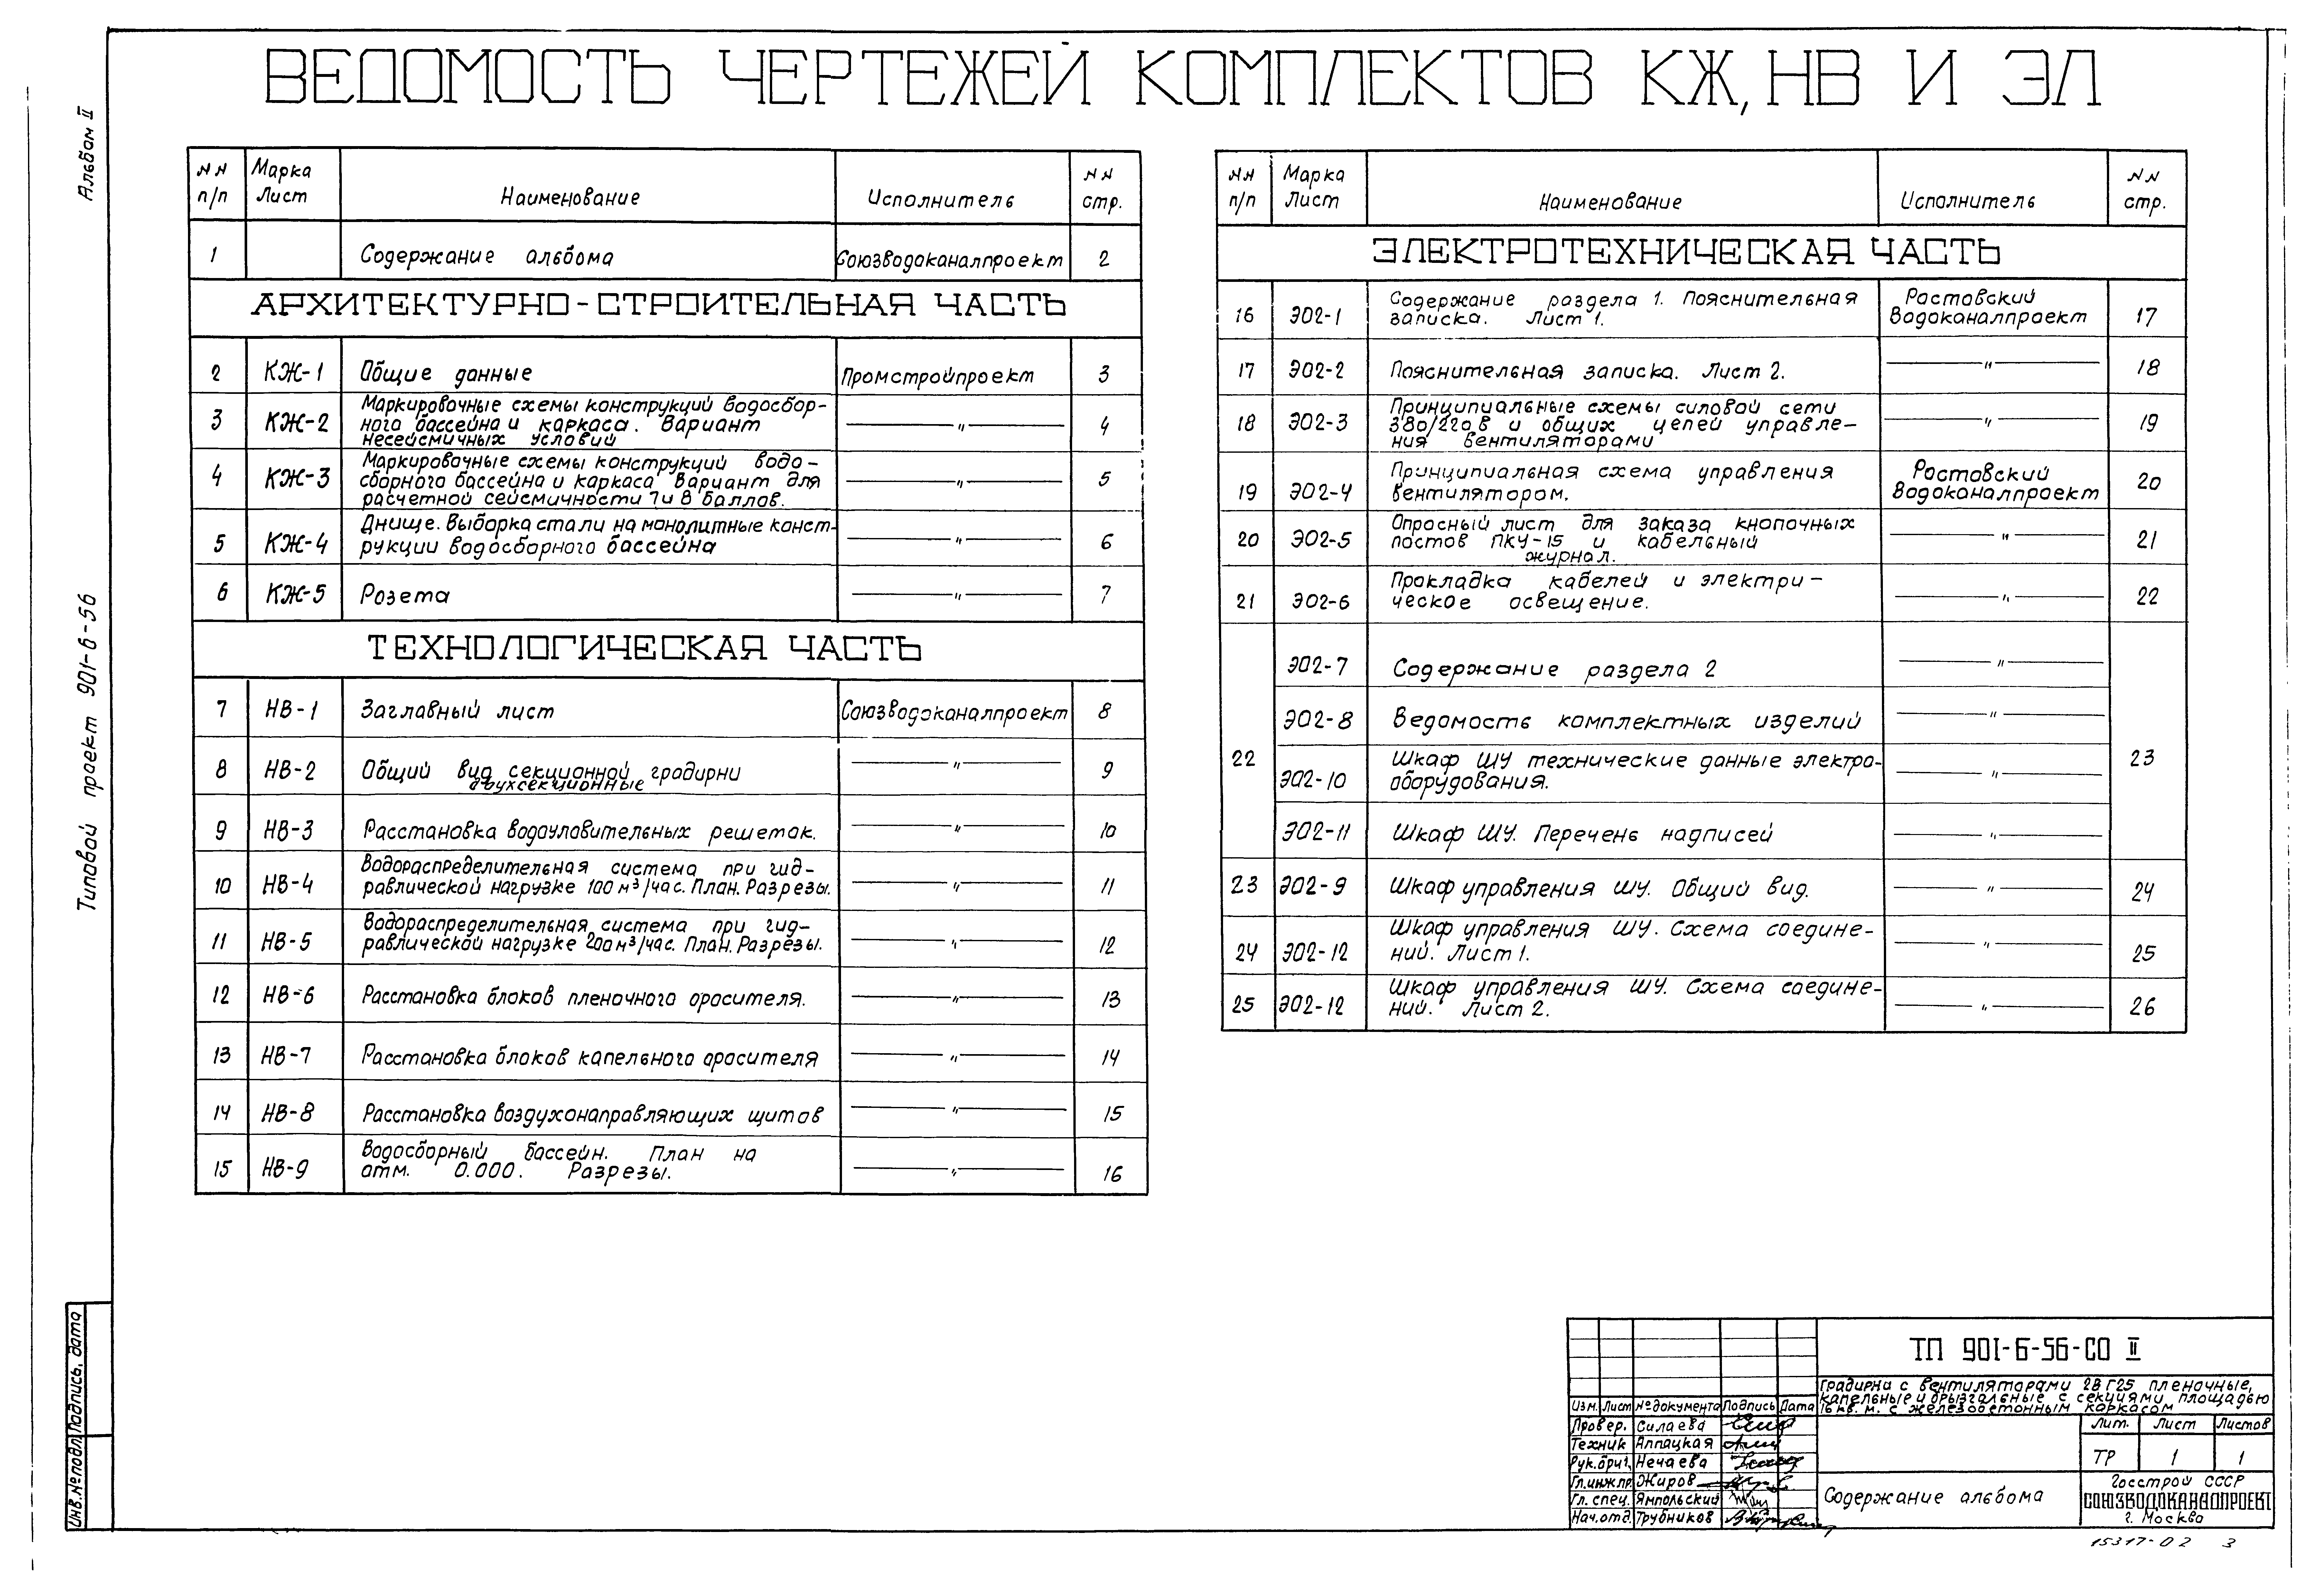 ВЕДОМОСТЬ ЧЕРТЕЖЕЙ КОМПЛЕКТОВ КЖ, НВ И ЭЛ
Альбом II
Типовой проект 901-6-56
NN п/п Марка Лист Наименование Исполнитель NN стр.
1 Содержание альбома Союзводоканалпроект 2
АРХИТЕКТУРНО-СТРОИТЕЛЬНАЯ ЧАСТЬ
2 КЖ-1 Общие данные Промстройпроект 3
3 КЖ-2 Маркировочные схемы конструкций водосбор-
ного бассейна и каркаса. Вариант
несейсмичных условий —〃— 4
4 КЖ-3 Маркировочные схемы конструкций водо-
сборного бассейна и каркаса Вариант для
расчетной сейсмичности 7 и 8 баллов. —〃— 5
5 КЖ-4 Днище. Выборка стали на монолитные конст-
рукции водосборного бассейна —〃— 6
6 КЖ-5 Розета —〃— 7
ТЕХНОЛОГИЧЕСКАЯ ЧАСТЬ
7 НВ-1 Заглавный лист Союзводоканалпроект 8
8 НВ-2 Общий вид секционной градирни
двухсекционные —〃— 9
9 НВ-3 Расстановка водоуловительных решеток. —〃— 10
10 НВ-4 Водораспределительная система при гид-
равлической нагрузке 100 м³/час. План. Разрезы. —〃— 11
11 НВ-5 Водораспределительная система при гид-
равлической нагрузке 200 м³/час. План. Разрезы. —〃— 12
12 НВ-6 Расстановка блоков пленочного оросителя. —〃— 13
13 НВ-7 Расстановка блоков капельного оросителя —〃— 14
14 НВ-8 Расстановка воздухонаправляющих щитов —〃— 15
15 НВ-9 Водосборный бассейн. План на
отм. 0.000. Разрезы. —〃— 16
NN п/п Марка Лист Наименование Исполнитель NN стр.
ЭЛЕКТРОТЕХНИЧЕСКАЯ ЧАСТЬ
16 ЭО2-1 Содержание раздела 1. Пояснительная
записка. Лист 1. Ростовский Водоканалпроект 17
17 ЭО2-2 Пояснительная записка. Лист 2. —〃— 18
18 ЭО2-3 Принципиальные схемы силовой сети
380/220 в и общих цепей управле-
ния вентиляторами —〃— 19
19 ЭО2-4 Принципиальная схема управления
вентилятором. Ростовский Водоканалпроект 20
20 ЭО2-5 Опросный лист для заказа кнопочных
постов ПКУ-15 и кабельный
журнал. —〃— 21
21 ЭО2-6 Прокладка кабелей и электри-
ческое освещение. —〃— 22
22 ЭО2-7 Содержание раздела 2 —〃— 23
ЭО2-8 Ведомость комплектных изделий —〃—
ЭО2-10 Шкаф ШУ технические данные электро-
оборудования. —〃—
ЭО2-11 Шкаф ШУ. Перечень надписей —〃—
23 ЭО2-9 Шкаф управления ШУ. Общий вид. —〃— 24
24 ЭО2-12 Шкаф управления ШУ. Схема соедине-
ний. Лист 1. —〃— 25
25 ЭО2-12 Шкаф управления ШУ. Схема соедине-
ний. Лист 2. —〃— 26
Инв.№ подл. Подпись, дата
ТП 901-6-56-СО II
Градирня с вентиляторами 2ВГ25 пленочные,
капельные и брызгальные с секциями площадью
16 кв. м. с железобетонным каркасом
Изм. Лист № документа Подпись Дата
Провер. Силаева
Техник Аппацкая
Рук.бриг. Нечаева
Гл.инж.пр. Жиров
Гл. спец. Ямпольский
Нач.отд. Трубников
Содержание альбома
Лит. Лист Листов
ТР 1 1
Госстрой СССР
СОЮЗВОДОКАНАЛПРОЕКТ
г. Москва
15317-02 3